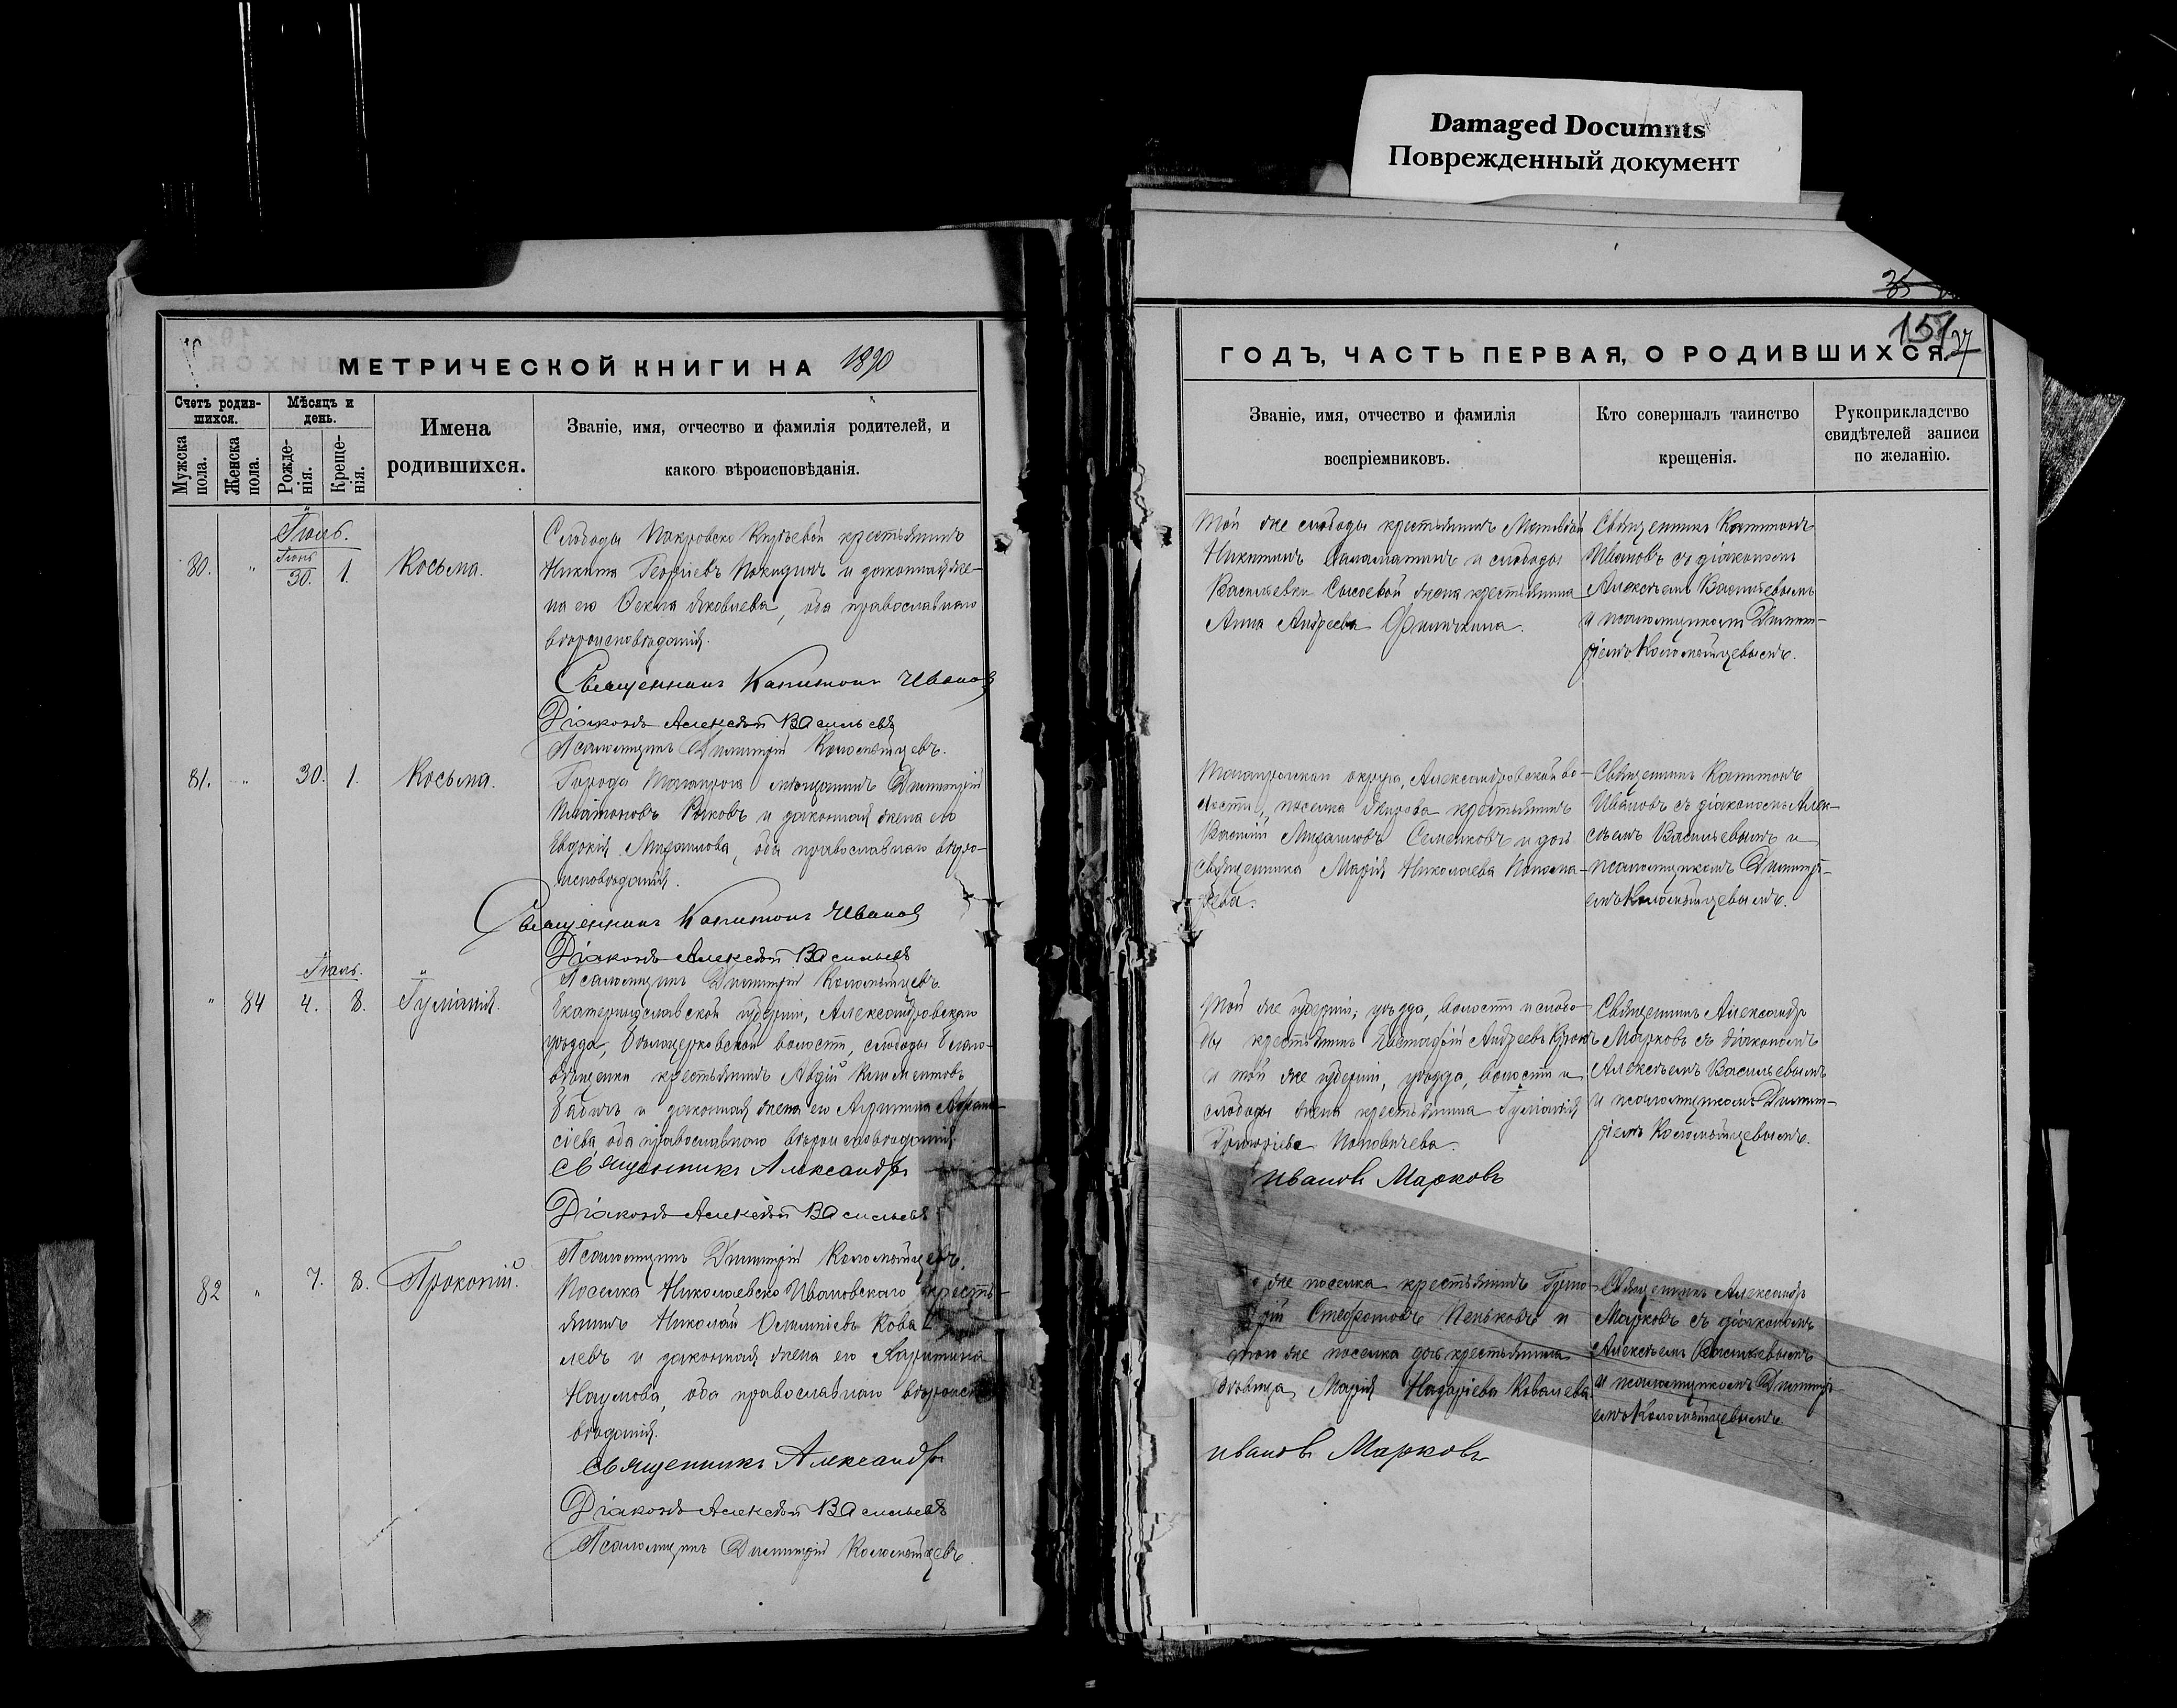 Damaged Documnts
Поврежденный документ
35
151
37
МЕТРИЧЕСКОЙ КНИГИ НА 1890
Счетъ родив-
шихся.
Мужска
пола.
Женска
пола.
Мѣсяцъ и
день.
Рожде-
нія.
Креще-
нія.
Имена
родившихся.
Званіе, имя, отчество и фамилія родителей, и
какого вѣроисповѣданія.
ГОДЪ, ЧАСТЬ ПЕРВАЯ, О РОДИВШИХСЯ.
Званіе, имя, отчество и фамилія
воспріемниковъ.
Кто совершалъ таинство
крещенія.
Рукоприкладство
свидѣтелей записи
по желанію.
Іюль.
80. " Іюнь 30. 1. Косьма.
Слободы Покровско Киреевой крестьянинъ
Никита Георгіевъ и законная же-
на его Ѳекла Яковлева, оба православнаго
вѣроисповѣданія.
Священникъ Капитонъ Ивановъ
Діаконъ Алексѣй Васильевъ
Псаломщикъ Димитрій Коломѣйцевъ.
Той же слободы крестьянинъ
Никитинъ и слободы
Васильевки Сысоевой жена крестьянина
Анна Андреева
Священникъ Капитонъ
Ивановъ съ діакономъ
Алексѣемъ Васильевымъ
и псаломщикомъ Димит-
ріемъ Коломѣйцевымъ.
81. " 30. 1. Косьма.
Города Таганрога мѣщанинъ Димитрій
Платоновъ и законная жена его
Евдокія Михаилова, оба православнаго вѣро-
исповѣданія.
Священникъ Капитонъ Ивановъ
Діаконъ Алексѣй Васильевъ
Псаломщикъ Димитрій Коломѣйцевъ
Таганрогскаго округа, Александровской во-
лости, поселка крестьянинъ
Василій Михаиловъ Семенковъ и дочь
священника Марія Николаева Понома-
рева.
Священникъ Капитонъ
Ивановъ съ діакономъ Алек-
сѣемъ Васильевымъ и
псаломщикомъ Димитрі-
емъ Коломѣйцевымъ.
Іюль.
" 84 4. 8. Іуліанія.
Екатеринославской губерніи, Александровскаго
уѣзда, волости, слободы
крестьянинъ Авдій Климентовъ
Бабичъ и законная жена его Агрипина Аѳана-
сіева оба православнаго вѣроисповѣданія.
Священникъ Александръ
Діаконъ Алексѣй Васильевъ
Псаломщикъ Димитрій Коломѣйцевъ.
Той же губерніи, уѣзда, волости и слобо-
ды крестьянинъ Евстафій Андреевъ
и той же губерніи, уѣзда, волости и
слободы жена крестьянина Іуліанія
Григоріева Поповичева.
Ивановъ Марковъ
Священникъ Александръ
Марковъ съ діакономъ
Алексѣемъ Васильевымъ
и псаломщикомъ Димит-
ріемъ Коломѣйцевымъ.
82 " 7. 8. Прокопій.
Поселка Николаевско Ивановскаго кресть-
янинъ Николай Кова-
левъ и законная жена его Харитина
Наумова, оба православнаго вѣроиспо-
вѣданія.
Священникъ Александръ
Діаконъ Алексѣй Васильевъ
Псаломщикъ Димитрій Коломѣйцевъ.
же поселка крестьянинъ Григо-
рій Стефановъ Пеньковъ и
того же поселка дочь крестьянина
дѣвица Марія Назаріева Ковалева.
Ивановъ Марковъ
Священникъ Александръ
Марковъ съ діакономъ
Алексѣемъ Васильевымъ
и псаломщикомъ Димитрі-
емъ Коломѣйцевымъ